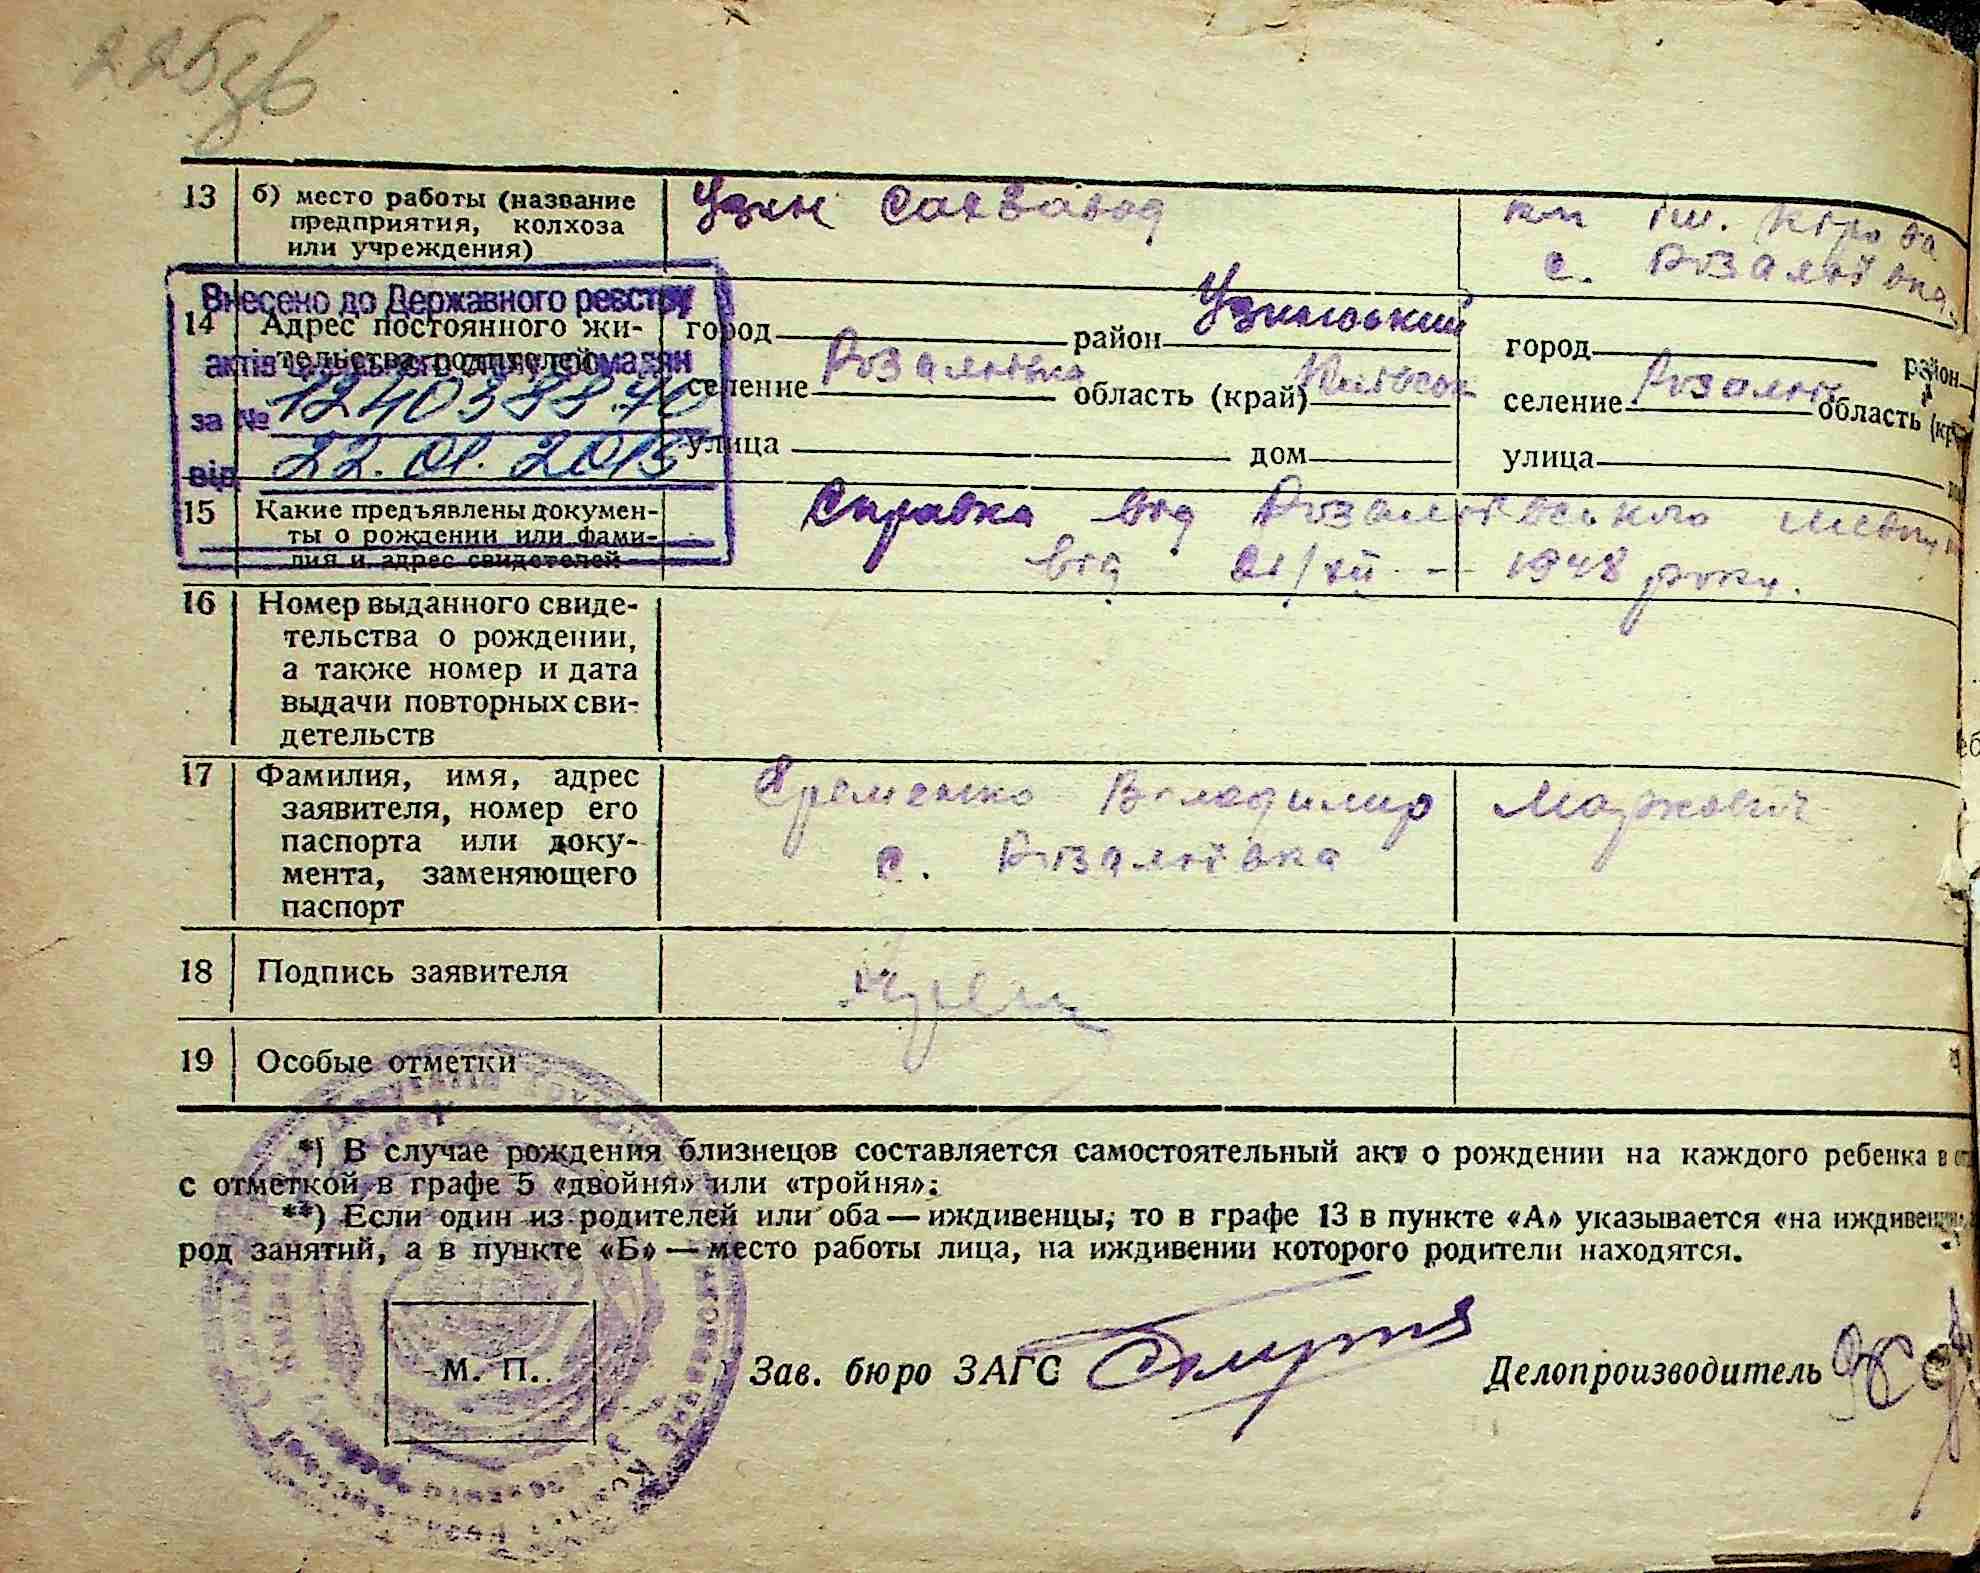 13 б) место работы (название предприятия, колхоза или учреждения)
Узин Сахзавод
кп ім. Кірова
с. Розаліївка
Внесено до Державного реєстру
актів цивільного стану громадян
за №
від 22.01.2015
14 Адрес постоянного жи-
тельства родителей
город район Узинський
селение Розаліївка область (край)
улица дом
город район
селение область (кр
улица
15 Какие предъявлены докумен-
ты о рождении или фами-
лия и адрес свидетелей
Справка від Розаліївського
від 21/XII - 1948 року.
16 Номер выданного свиде-
тельства о рождении,
а также номер и дата
выдачи повторных сви-
детельств
17 Фамилия, имя, адрес
заявителя, номер его
паспорта или доку-
мента, заменяющего
паспорт
Єременко Володимир Маркович
с. Розаліївка
18 Подпись заявителя
19 Особые отметки
*) В случае рождения близнецов составляется самостоятельный акт о рождении на каждого ребенка в
с отметкой в графе 5 «двойня» или «тройня»;
**) Если один из родителей или оба — иждивенцы, то в графе 13 в пункте «А» указывается «на иждивен
род занятий, а в пункте «Б» — место работы лица, на иждивении которого родители находятся.
М. П.
Зав. бюро ЗАГС
Делопроизводитель